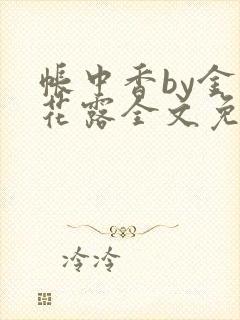 帐中香by金
花露全文免
冷冷